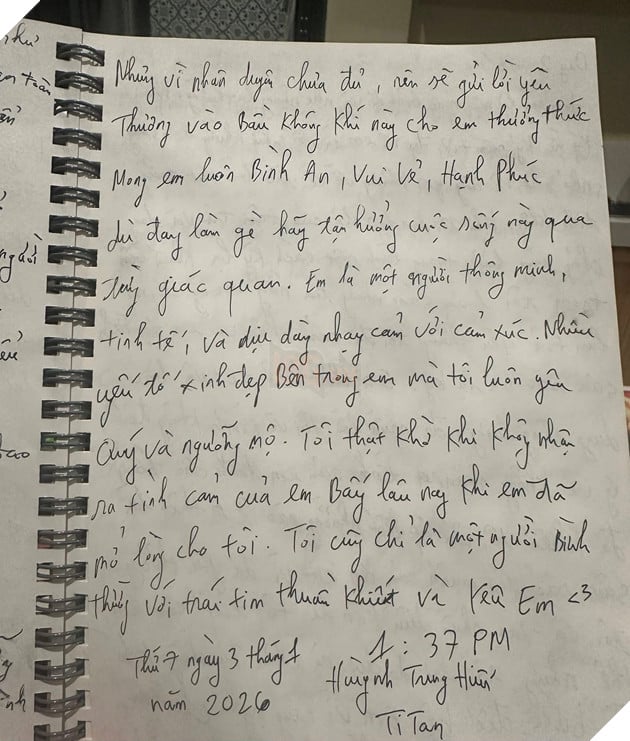 Nhưng vì nhân duyên chưa đủ, nên sẽ gửi lời yêu
Thương vào Bầu không khí này cho em thưởng thức
Mong em luôn Bình An, Vui Vẻ, Hạnh Phúc
dù đang làm gì hãy tận hưởng cuộc sống này qua
từng giác quan. Em là một người thông minh,
tinh tế, và dịu dàng nhạy cảm với cảm xúc. Nhiều
yếu tố xinh đẹp Bên trong em mà tôi luôn yêu
Quý và ngưỡng mộ. Tôi thật khờ khi không nhận
ra tình cảm của em Bấy lâu nay khi em đã
mở lòng cho tôi. Tôi cũng chỉ là một người Bình
thường với trái tim thuần khiết và Yêu Em <3
Thứ 7 ngày 3 tháng 1
năm 2026
1:37 PM
Huỳnh Trung Hiếu
TiTan